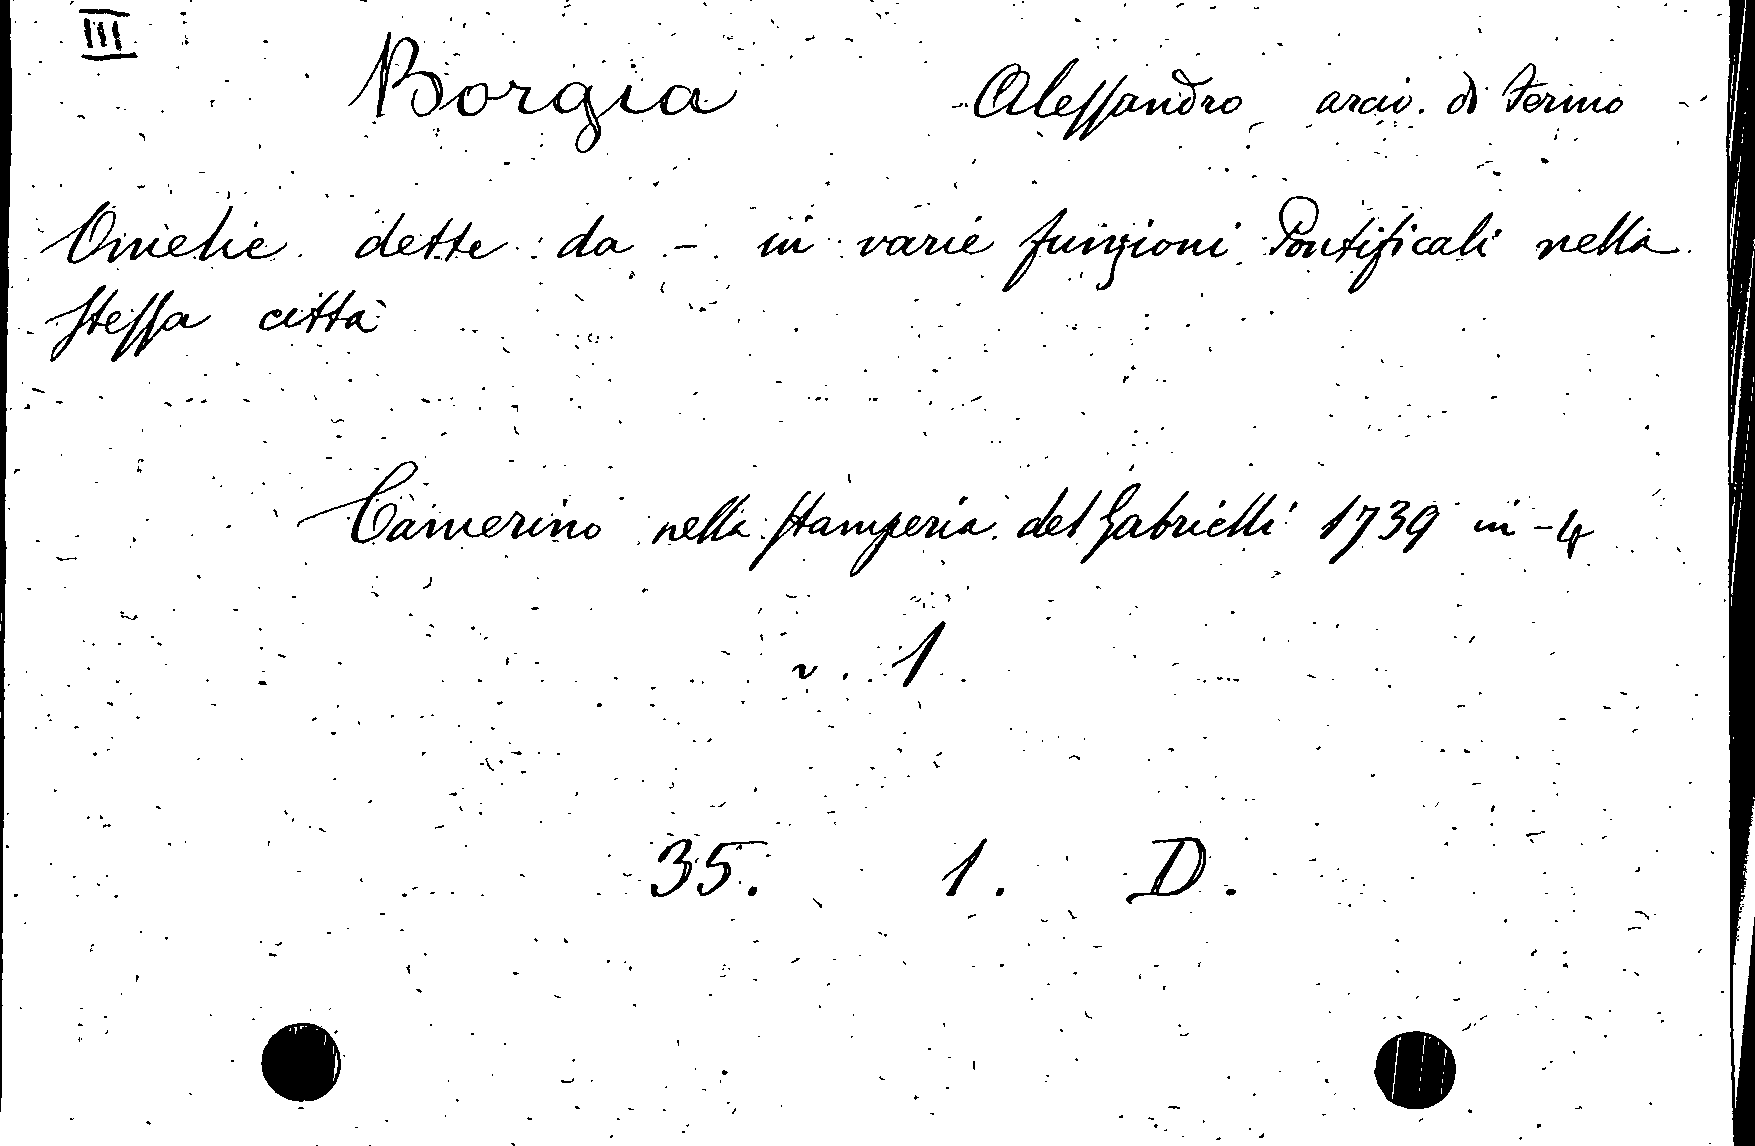 III
Borgia Alessandro arciv. di Fermo
Omelie dette da - in varie funzioni Pontificali nella
stessa città
Camerino nella stamperia del Gabrielli 1739 in-4
v. 1
35. 1. D.